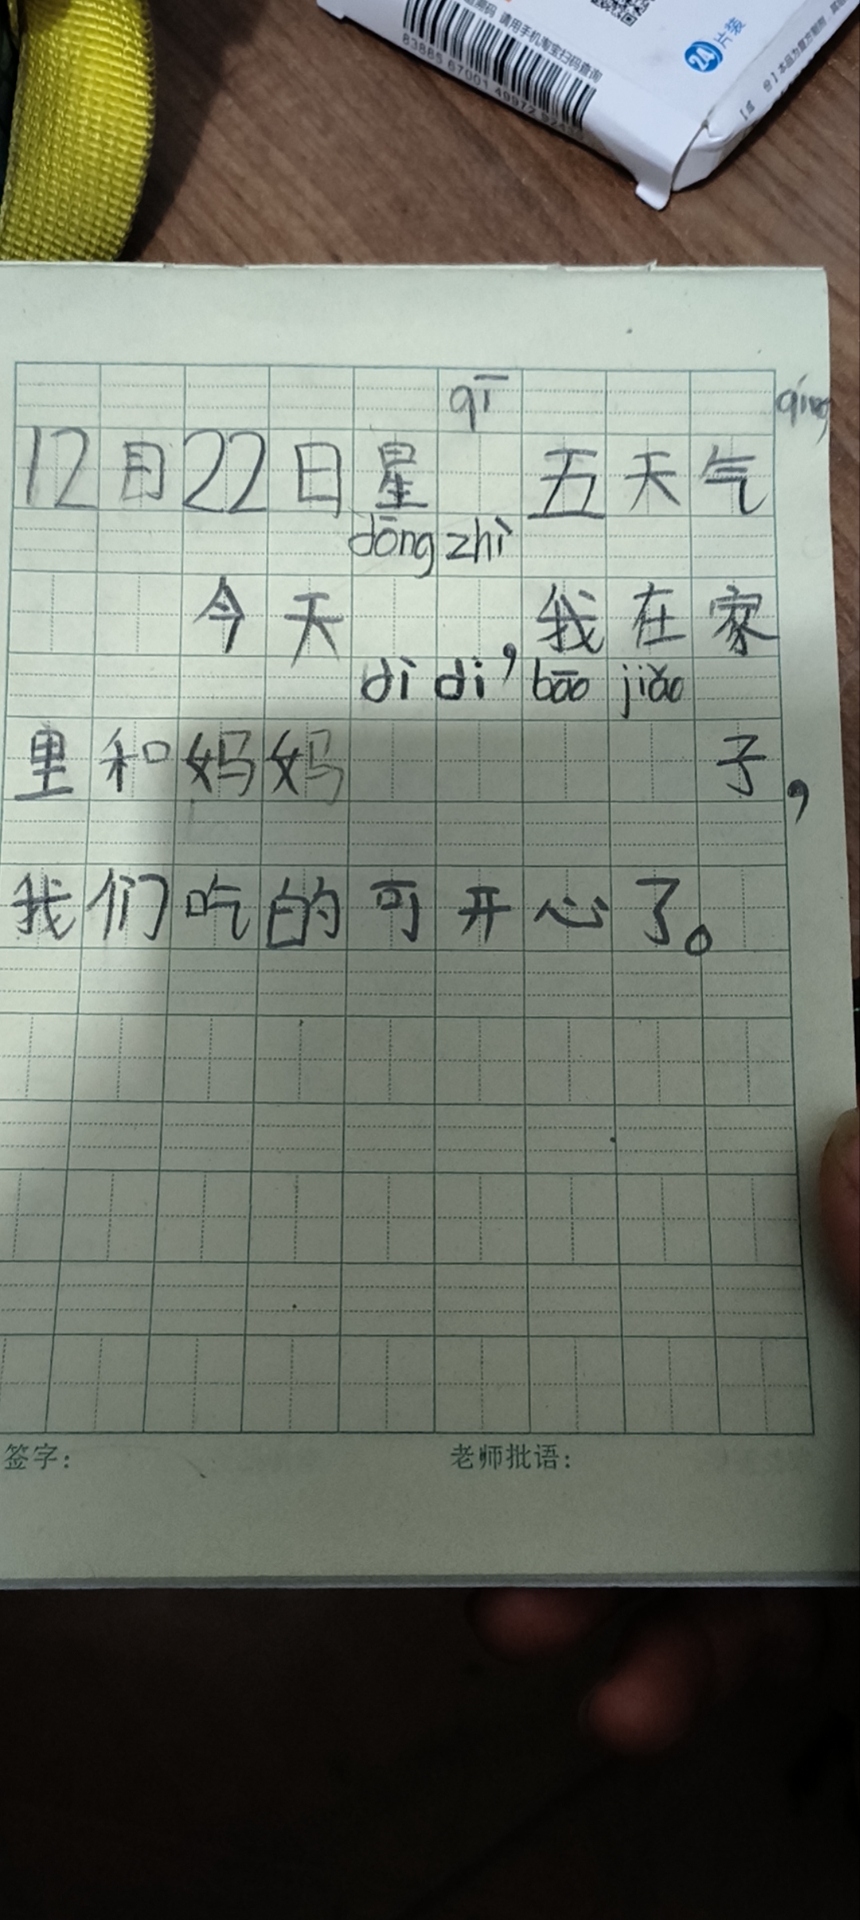 请用手机淘宝扫码查询
83865 67001 49972
24片装
qī qíng
12月22日星 五天气
dōng zhì
今天 我在家
dì di，bāo jiǎo
里和妈妈 子，
我们吃的可开心了。
签字： 老师批语：